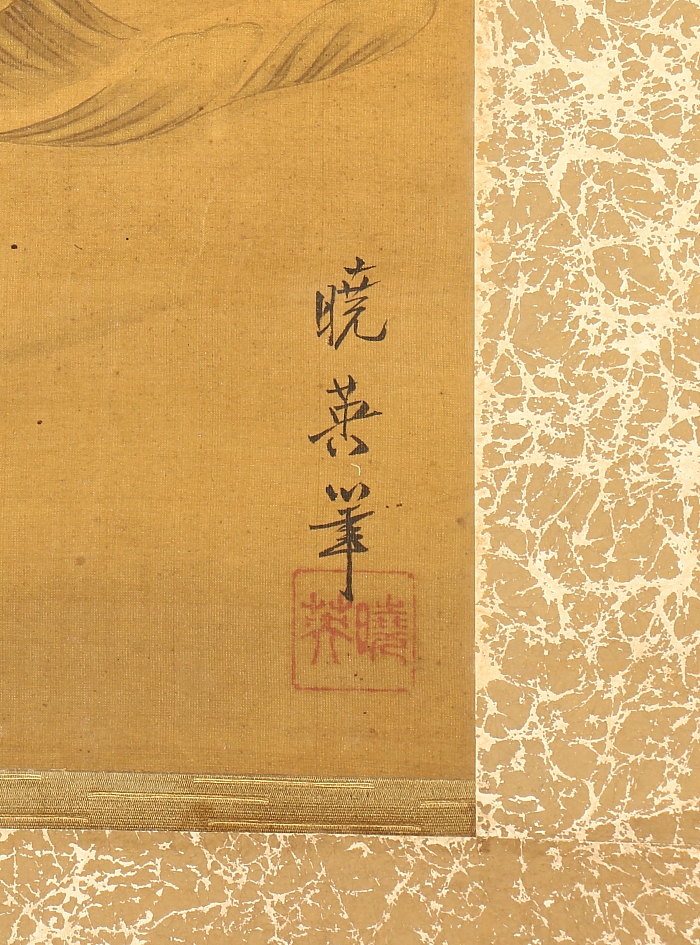 暁英筆
曉英